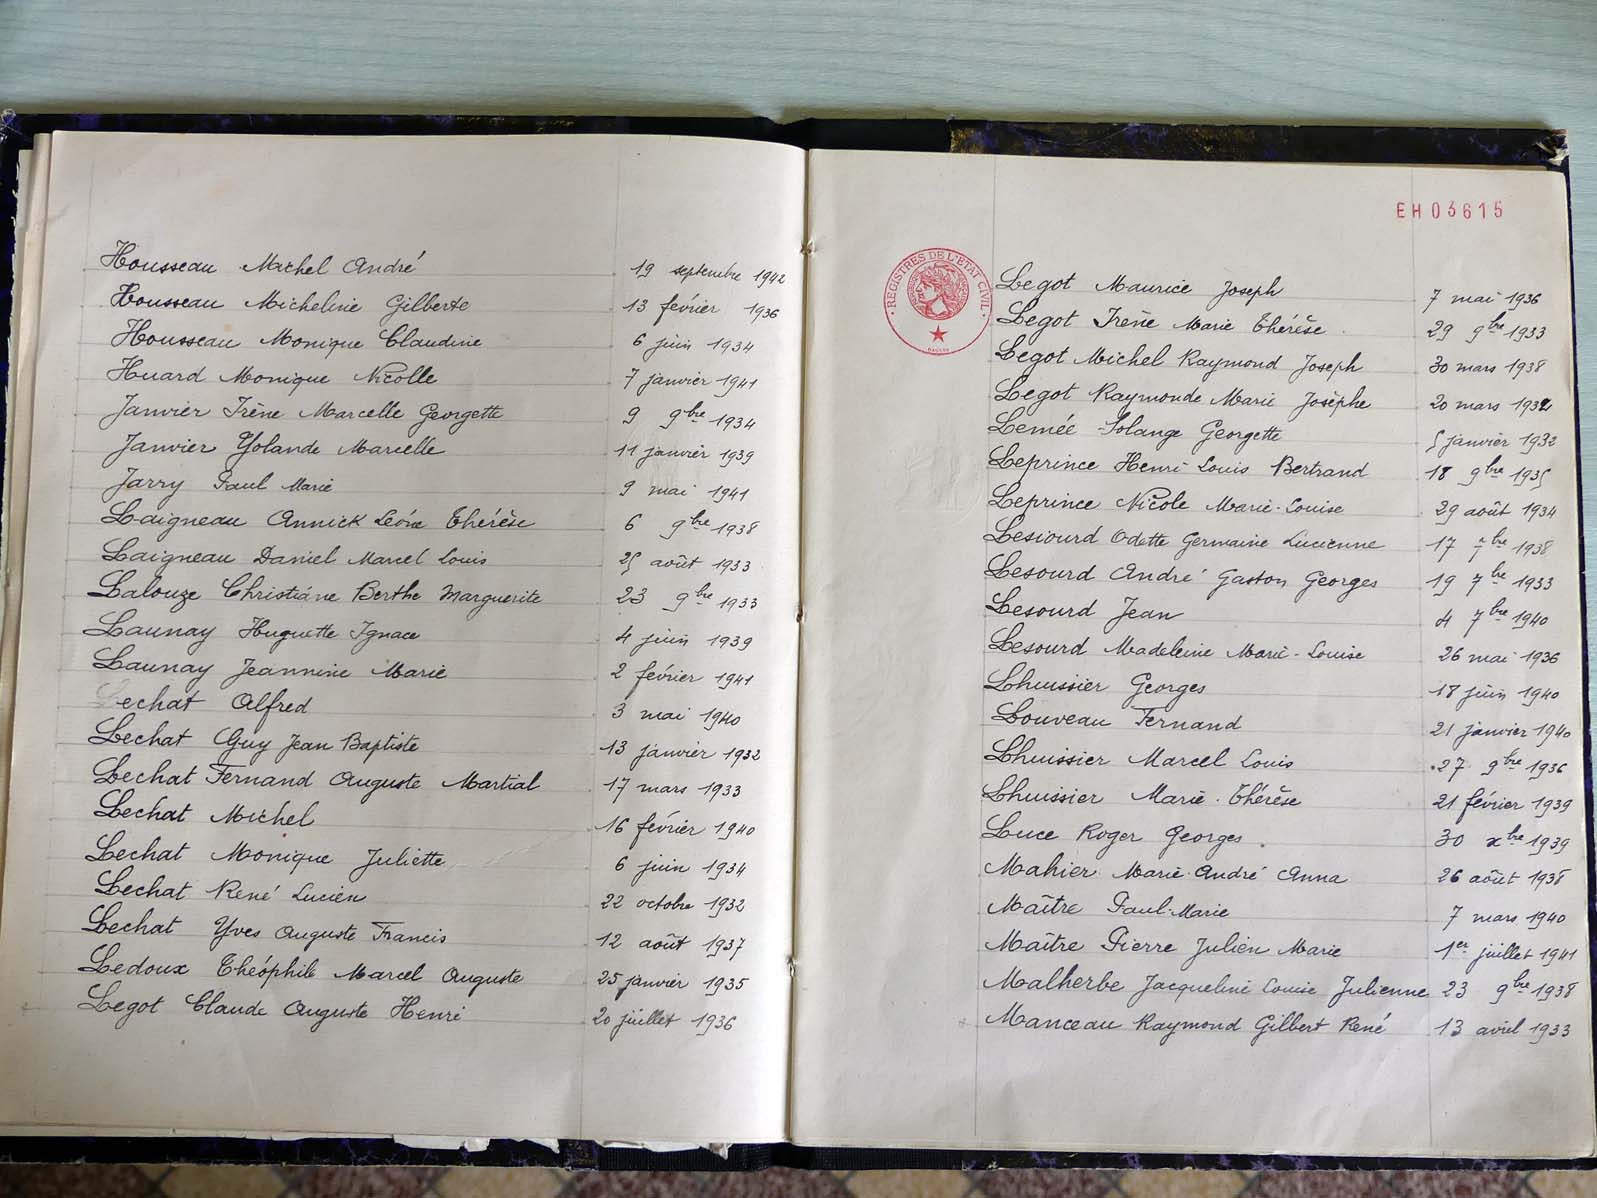 Housseau Michel André 19 septembre 1942
Housseau Micheline Gilberte 13 février 1936
Housseau Monique Claudine 6 juin 1934
Huard Monique Nicolle 7 janvier 1941
Janvier Irène Marcelle Georgette 9 9bre 1934
Janvier Yolande Marcelle 11 janvier 1939
Jarry Paul Marie 9 mai 1941
Laigneau Annick Léone Thérèse 6 9bre 1938
Laigneau Daniel Marcel Louis 25 août 1933
Lalouze Christiane Berthe Marguerite 23 9bre 1933
Launay Huguette Ignace 4 juin 1939
Launay Jeannine Marie 2 février 1941
Lechat Alfred 3 mai 1940
Lechat Guy Jean Baptiste 13 janvier 1932
Lechat Fernand Auguste Martial 17 mars 1933
Lechat Michel 16 février 1940
Lechat Monique Juliette 6 juin 1934
Lechat René Lucien 22 octobre 1932
Lechat Yves Auguste Francis 12 août 1937
Ledoux Théophile Marcel Auguste 25 janvier 1935
Legot Claude Auguste Henri 20 juillet 1936
EH03615
REGISTRES DE L'ETAT CIVIL
Legot Maurice Joseph 7 mai 1936
Legot Irène Marie Thérèse 29 9bre 1933
Legot Michel Raymond Joseph 30 mars 1938
Legot Raymonde Marie Josèphe 20 mars 1932
Lemée Solange Georgette 5 janvier 1932
Leprince Henri Louis Bertrand 18 9bre 1935
Leprince Nicole Marie-Louise 29 août 1934
Lesiourd Odette Germaine Lucienne 17 7bre 1938
Lesourd André Gaston Georges 19 7bre 1933
Lesourd Jean 4 7bre 1940
Lesourd Madeleine Marie-Louise 26 mai 1936
Lhuissier Georges 18 juin 1940
Louveau Fernand 21 janvier 1940
Lhuissier Marcel Louis 27 9bre 1936
Lhuissier Marie-Thérèse 21 février 1939
Luce Roger Georges 30 xbre 1939
Mahier Marie-André Anna 26 août 1938
Maître Paul-Marie 7 mars 1940
Maître Pierre Julien Marie 1er juillet 1941
Malherbe Jacqueline Louise Julienne 23 9bre 1938
Manceau Raymond Gilbert René 13 avril 1933